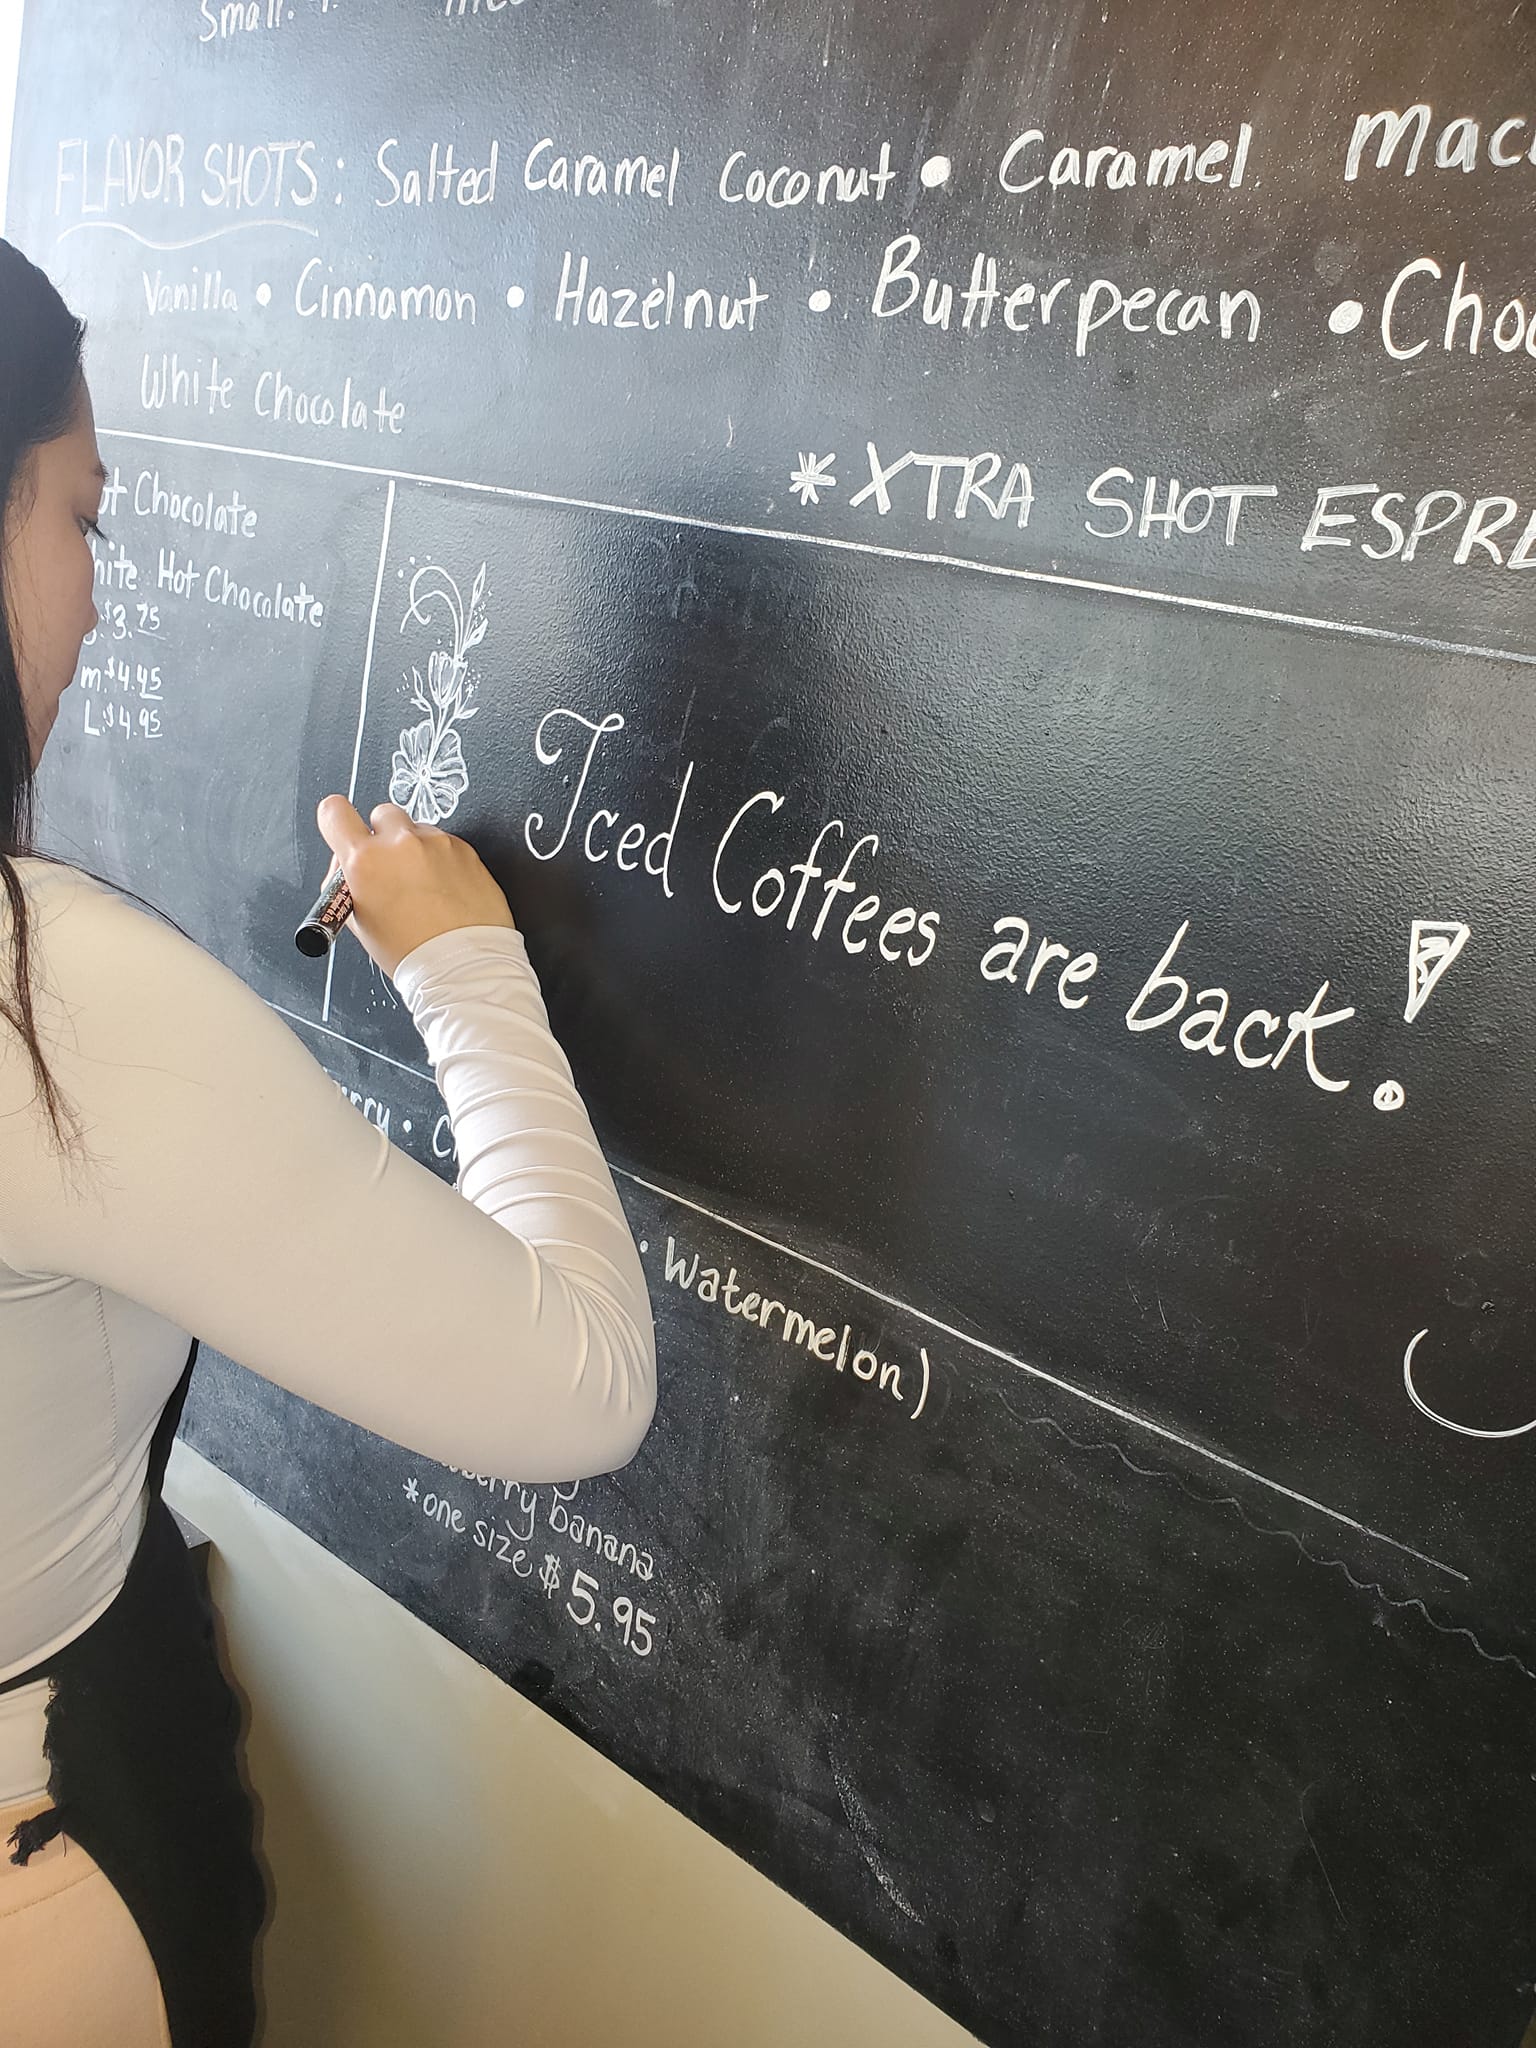 Small.
FLAVOR SHOTS: Salted Caramel Coconut • Caramel
Vanilla • Cinnamon • Hazelnut • Butterpecan •
White Chocolate
*XTRA SHOT
Chocolate
Hot Chocolate
$3.75
m.$4.45
L.$4.95
Iced Coffees are back!
• Watermelon)
banana
*one size $5.95